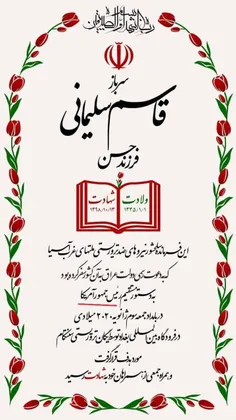 سرباز
قاسم سلیمانی
فرزند حسن
ولادت
شهادت
۱۳۳۵/۱/۱
۱۳۹۸/۱۰/۱۳
این فرمانده کشور نیروهای ضد تروریستی ملتهای غرب آسیا
که به دعوت رسمی دولت عراق میهمان آن کشور بود
به دستور مستقیم رئیس جمهور آمریکا
در بامداد جمعه سوم ژانویه ۲۰۲۰ میلادی
در فرودگاه بین المللی بغداد توسط پهپادهای تروریستی
مورد هدف قرار گرفت
و همراه جمعی از همراهان خود به شهادت رسید